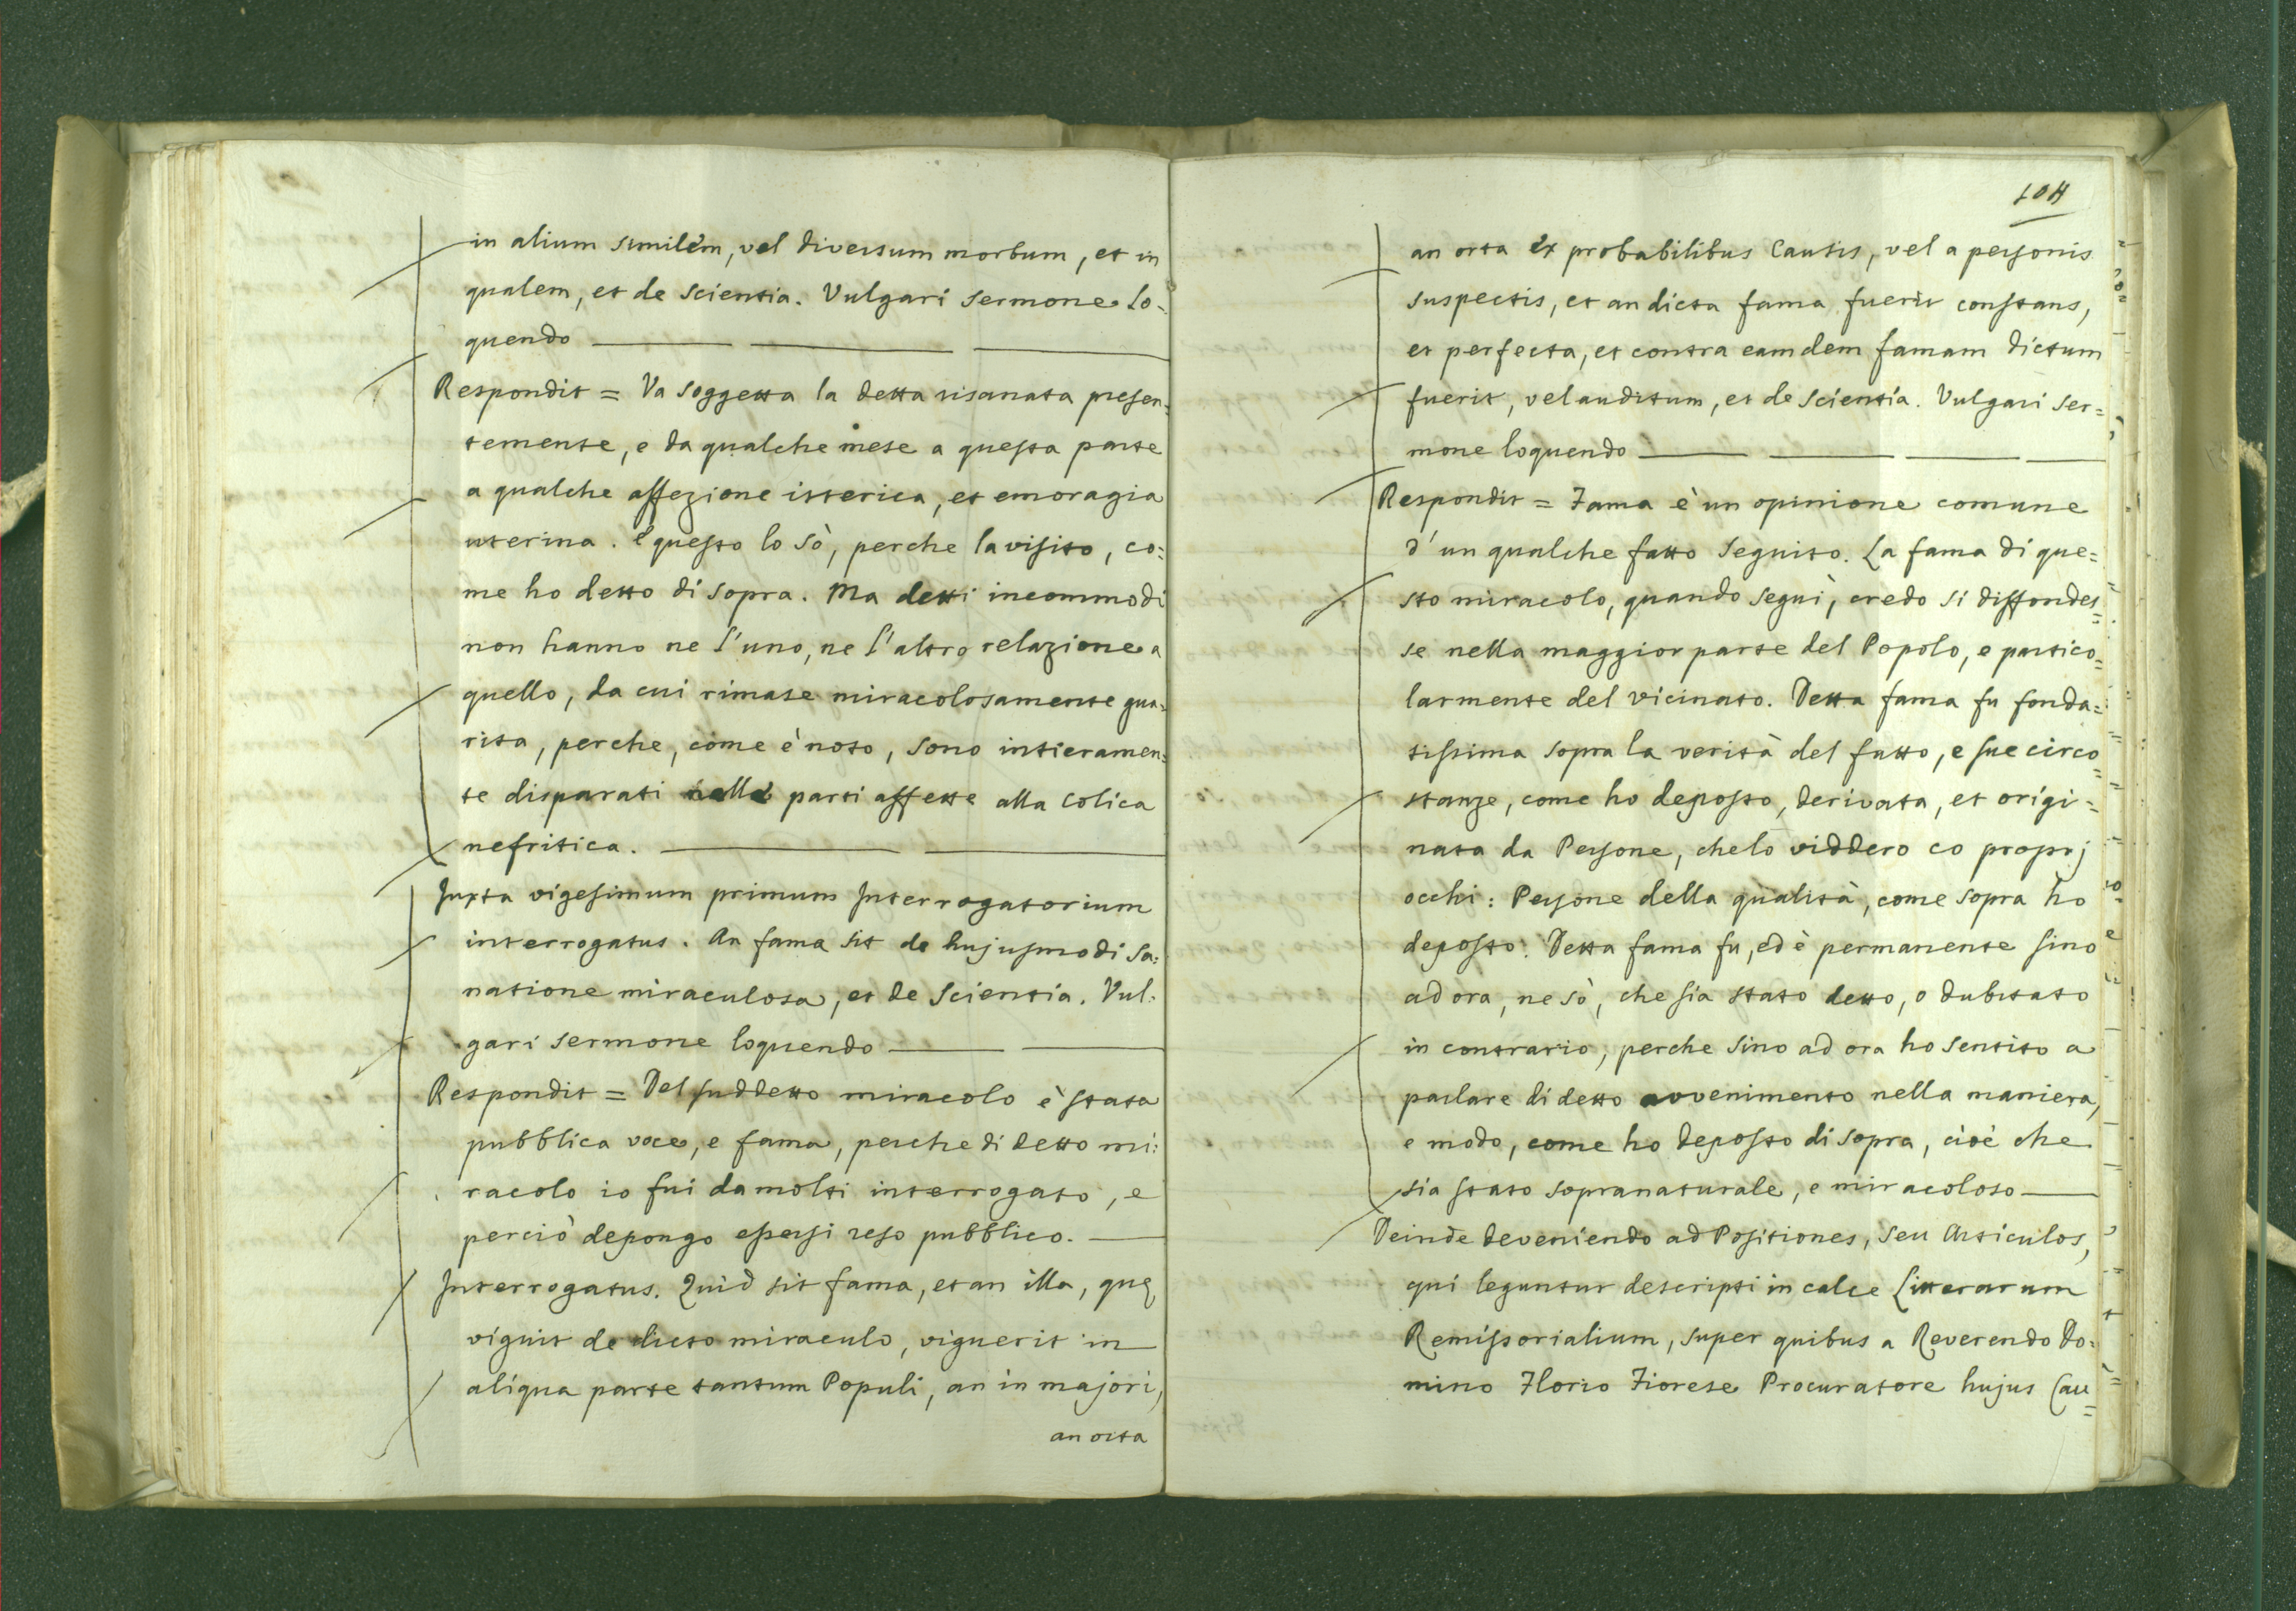 in alium similem, vel diversum morbum, et in
qualem, et de scientia. Vulgari sermone lo=
quendo
Respondit = Va soggetta la detta risanata presen=
temente, e da qualche mese a questa parte
a qualche affezione isterica, et emoragia
uterina. E questo lo sò, perche la visito, co=
me ho detto di sopra. Ma detti incommodi
non hanno ne l'uno, ne l'altro relazione a
quello, da cui rimase miracolosamente gua=
rita, perche, come è noto, sono intieramen=
te disparati nelle parti affette alla colica
nefritica.
Juxta vigesimum primum Interrogatorium
interrogatus. An fama sit de hujusmodi sa=
natione miraculosa, et de scientia. Vul=
gari sermone loquendo
Respondit = Del suddetto miracolo è stata
pubblica voce, e fama, perche di detto mi=
racolo io fui da molti interrogato, e
perciò depongo essersi reso pubblico.
Interrogatus. Quid sit fama, et an illa, quę
viguit de dicto miraculo, viguerit in
aliqua parte tantum Populi, an in majori,
an orta
104
an orta ex probabilibus Causis, vel a personis
suspectis, et an dicta fama fuerit constans,
et perfecta, et contra eamdem famam dictum
fuerit, vel auditum, et de scientia. Vulgari ser=
mone loquendo
Respondit = Fama è un opinione comune
d'un qualche fatto seguito. La fama di que=
sto miracolo, quando seguì, credo si diffondes=
se nella maggior parte del Popolo, e partico=
larmente del vicinato. Detta fama fu fonda=
tissima sopra la verità del fatto, e sue circo=
stanze, come ho deposto, derivata, et origi=
nata da Persone, che lo viddero co proprj
occhi: Persone della qualità, come sopra ho
deposto. Detta fama fu, ed è permanente sino
ad ora, ne sò, che sia stato detto, o dubitato
in contrario, perche sino ad ora ho sentito a
parlare di detto avvenimento nella maniera,
e modo, come ho deposto di sopra, cioè che
sia stato sopranaturale, e miracoloso
Deinde deveniendo ad Positiones, seu Articulos,
qui leguntur descripti in calce Litterarum
Remissorialium, super quibus a Reverendo Do=
mino Florio Fiorese Procuratore hujus Cau=